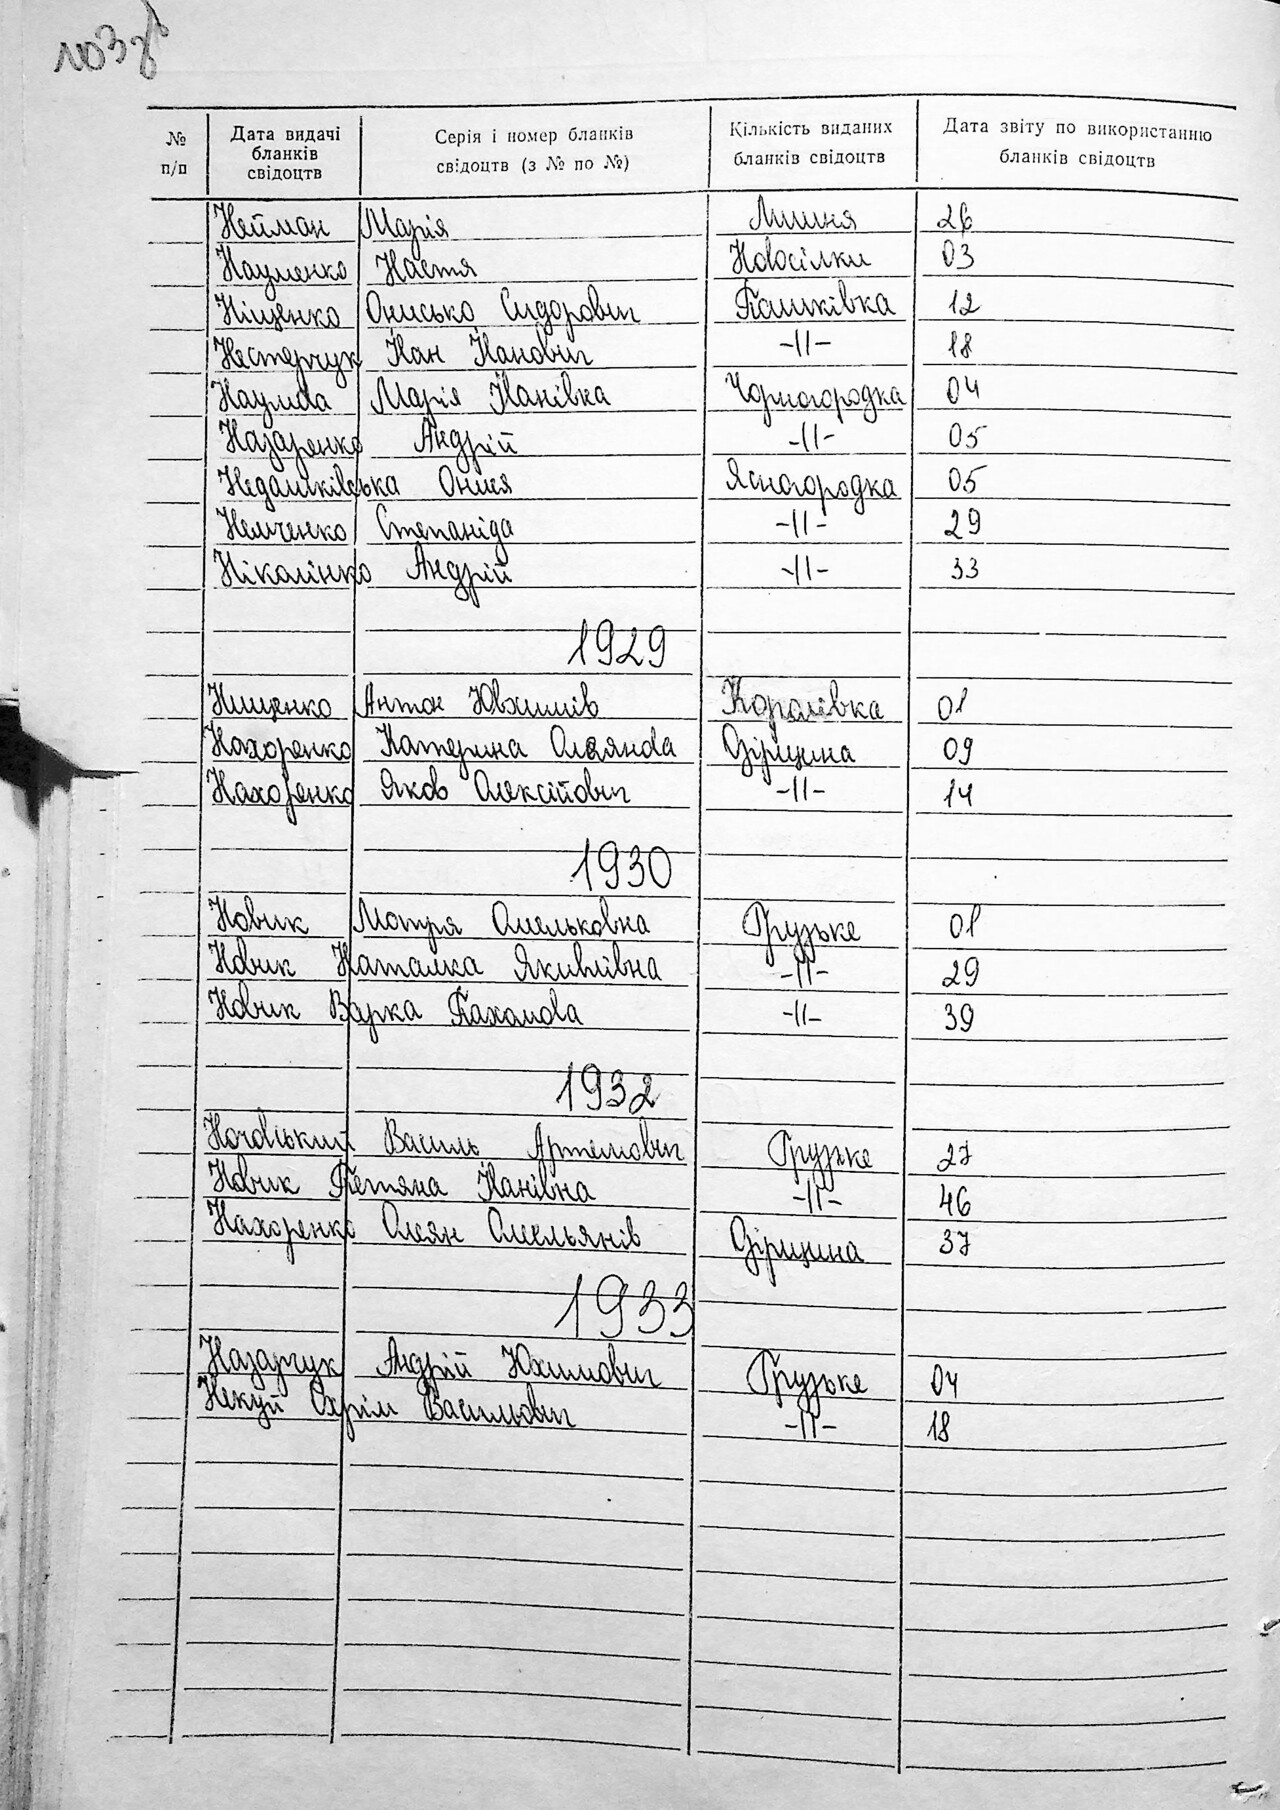 103 зв
№ п/п Дата видачі бланків свідоцтв Серія і номер бланків свідоцтв (з № по №) Кількість виданих бланків свідоцтв Дата звіту по використанню бланків свідоцтв
Нейман Марія Лишня 26
Науменко Настя Новосілки 03
Ніщенко Онисько Сидорович Пашківка 12
Нестерчук Іван Іванович -11- 18
Наумова Марія Іванівка Чорногородка 04
Назаренко Андрій -11- 05
Недашківська Ониця Ясногородка 05
Немченко Степаніда -11- 29
Ніколінко Андрій -11- 33
1929
Нищенко Антон Ювхимів Королівка 01
Нахоренко Катерина Олеянова Дірицина 09
Нахоренко Яков Олексійович -11- 14
1930
Новик Мотря Омельковна Грузьке 01
Новик Наталка Якимівна -11- 29
Новик Варка Пахомова -11- 39
1932
Василь Артемович Грузьке 27
Новик Тетяна Іванівна -11- 46
Нахоренко Олеян Омельянів Дірицина 37
1933
Назарчук Андрій Юхимович Грузьке 04
Некуй Охрім Васильович -11- 18